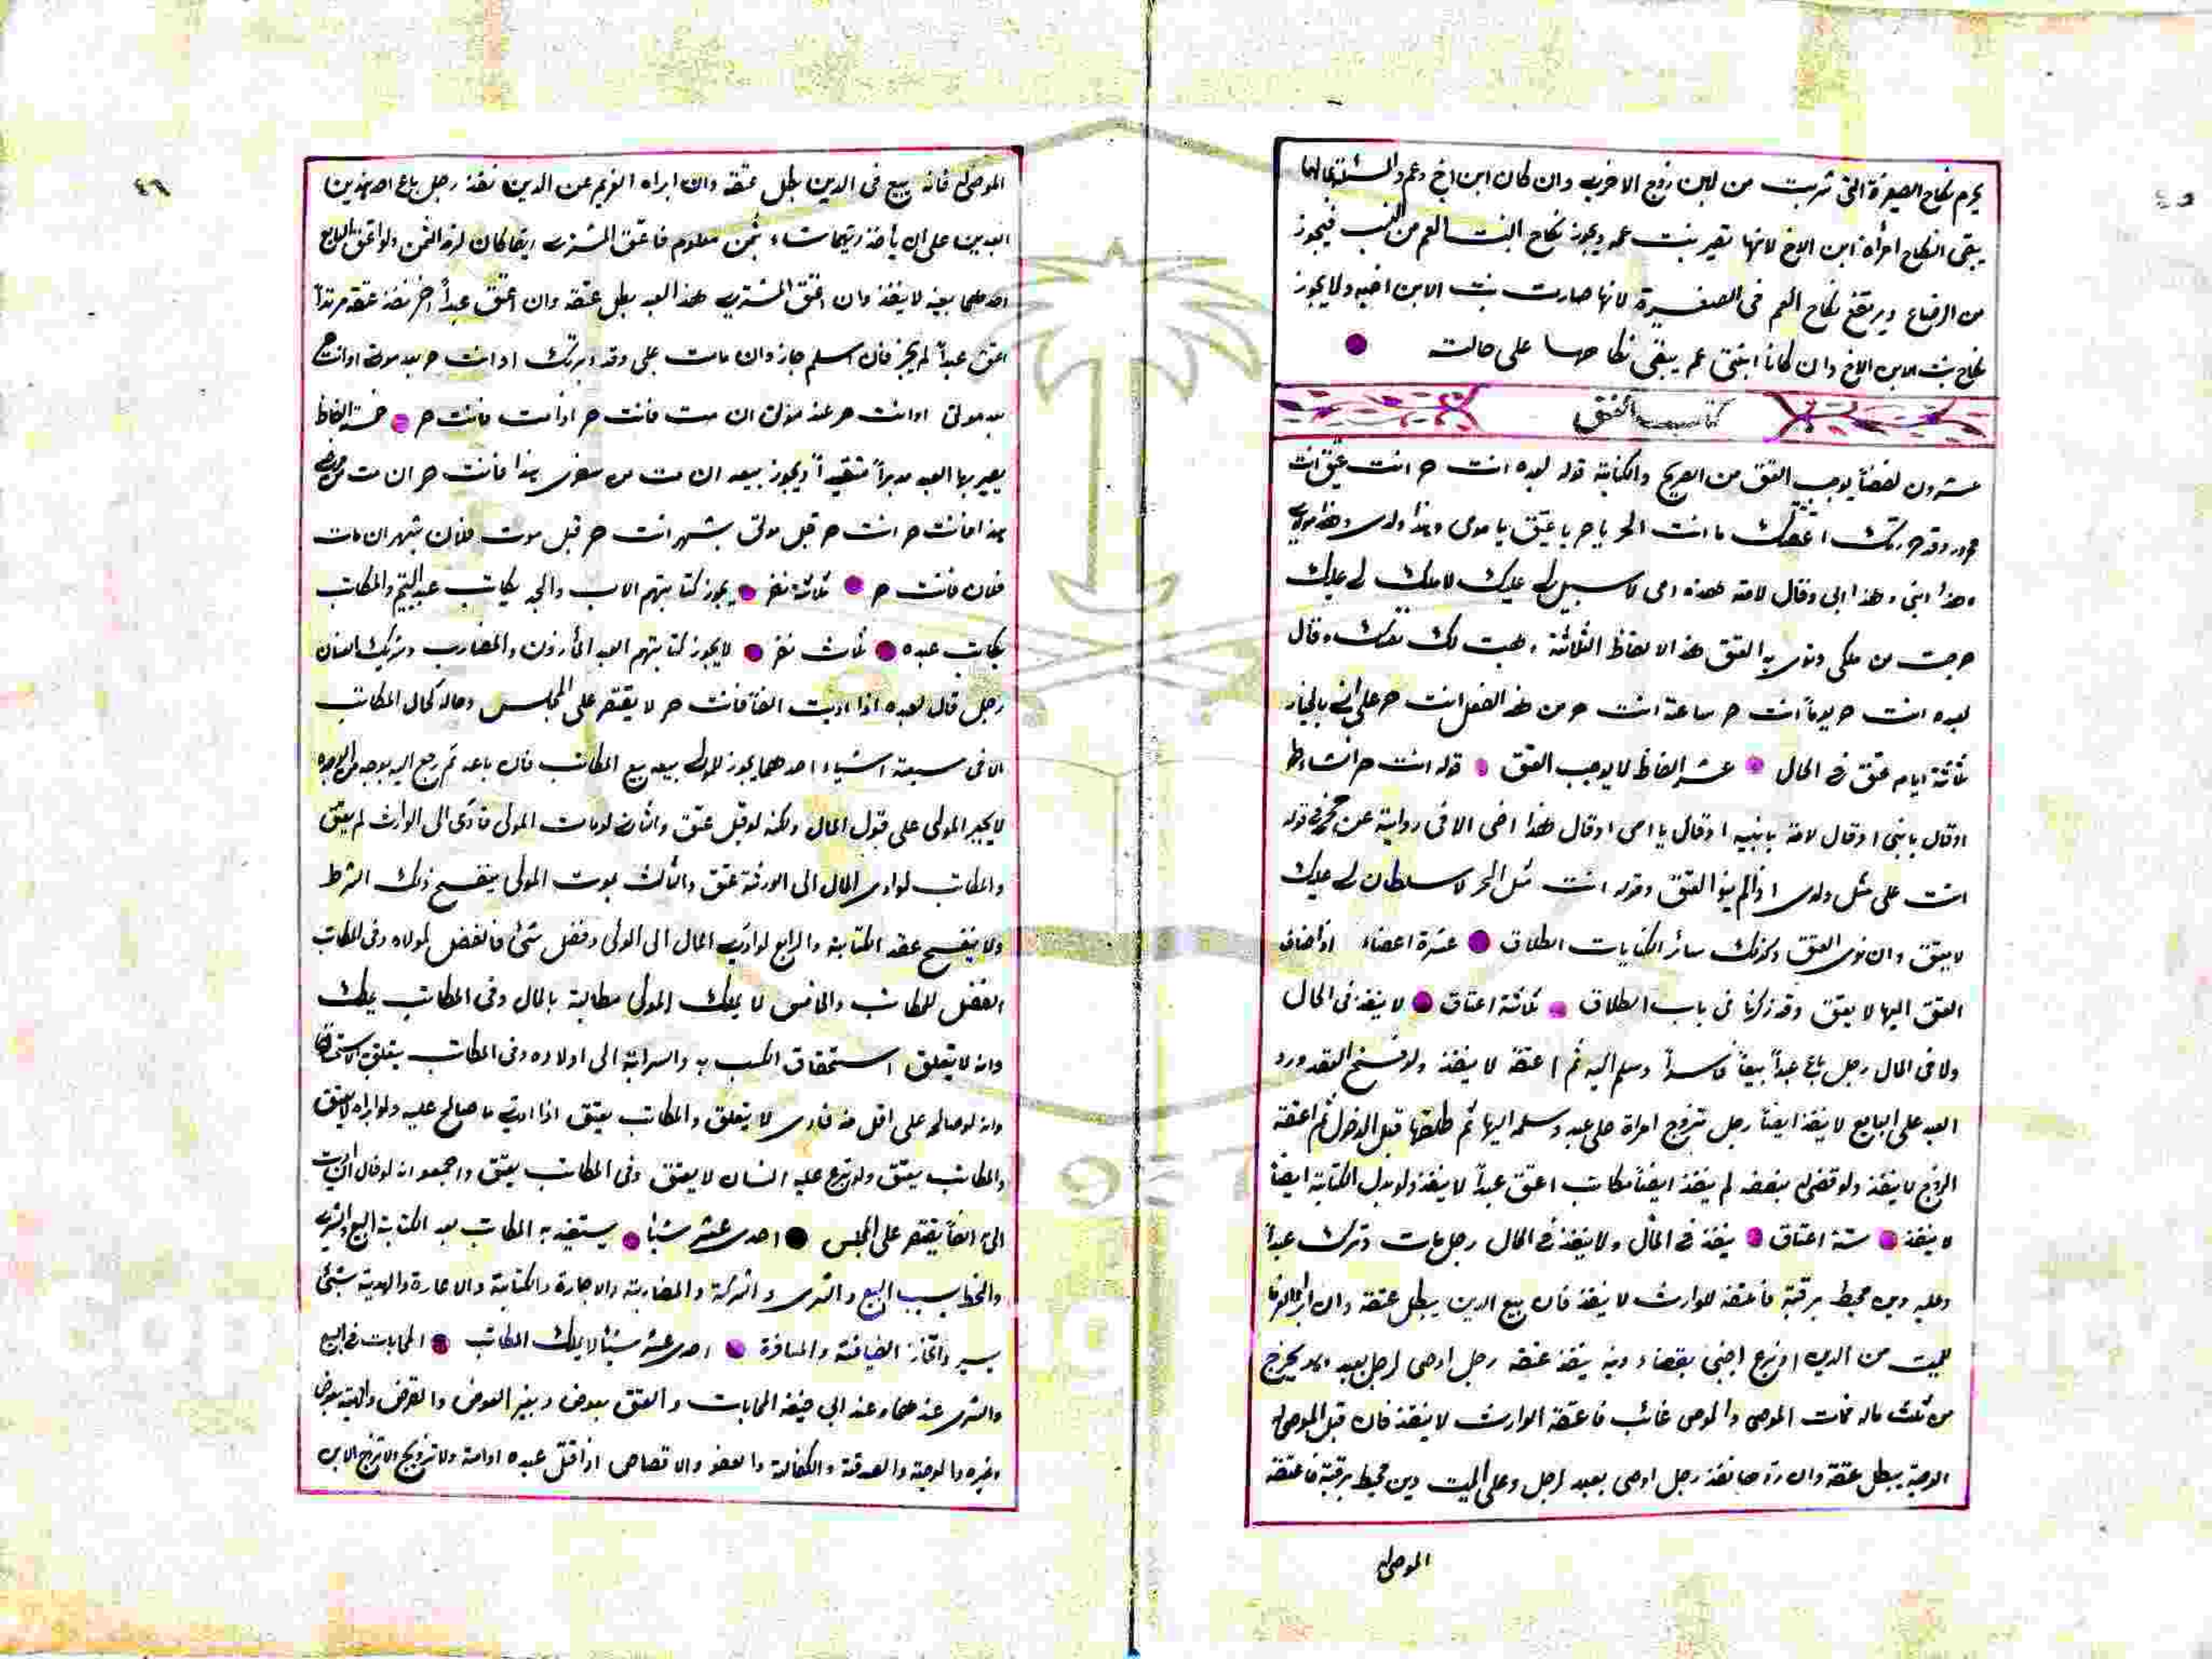 يحرم نكاح الصغيرة التى شربت من لبن زوج الاخرى وان كان ابن اخ وعم والمسئلة بحالها
يبقى النكاح امرأة ابن الاخ لانها تصير بنت عمه ويجوز نكاح البنت العم من النسب فيجوز
من الرضاع ويرتفع نكاح العم فى الصغيرة لانها صارت بنت الابن اخيه ولا يجوز
نكاح بنت الابن الاخ وان كانا ابنتى عم يبقى نكاحها على حالته
كتاب العتق
عشرون لفظاً يوجب العتق من الصريح والكناية قوله لعبده انت حر انت عتيق انت
محرر وقد حررتك اعتقتك ما انت الا حر يا حر يا عتيق يا مولى وهذا ولدى وهذا مولاى
وهذا ابنى وهذا ابى وقال لامته هذه امى لا سبيل لى عليك لا ملك لى عليك
خرجت من ملكى ونوى به العتق هذه الالفاظ الثلاثة وهبت لك نفسك وقال
لعبده انت حر يوماً انت حر ساعة انت حر من هذا العمل انت حر على انى بالخيار
ثلاثة ايام عتق فى الحال عشر الفاظ لا يوجب العتق قوله انت حر انشاء الله
او قال يا بنى او قال لامة يا بنيه او قال يا اخى او قال هذا اخى الا فى رواية عن محمد وقوله
انت على مثل ولدى اذا لم ينو العتق وقوله انت مثل الحر لا سلطان لى عليك
لا يعتق وان نوى العتق وكذلك سائر الكنايات الطلاق عشرة اعضاء اذا اضاف
العتق اليها لا يعتق وقد ذكرنا فى باب الطلاق ثلاثة اعتاق لا ينفذ فى الحال
ولا فى المال رجل باع عبداً بيعاً فاسداً وسلم اليه ثم اعتقه لا ينفذ ولو فسخ العقد ورد
العبد على البايع لا ينفذ ايضاً رجل تزوج امراة على عبد وسلمه اليها ثم طلقها قبل الدخول ثم اعتقه
الزوج لا ينفذ ولو قضى له بنصفه لم ينفذ ايضاً مكاتب اعتق عبداً لا ينفذ ولو بدل الكتابة ايضاً
لا ينفذ ستة اعتاق ينفذ فى المال ولا ينفذ فى الحال رجل مات وترك عبداً
وعليه دين محيط برقبته فاعتقه الوارث لا ينفذ فان بيع الدين يبطل عتقه وان ابرا الغرما
للميت من الدين او تبرع اجنبى بقضاء دينه ينفذ عتقه رجل اوصى لرجل بعبد يخرج
من ثلث ماله فمات الموصى والموصى غائب فاعتقه الوارث لا ينفذ فان قبل الموصى له
الوصية يبطل عتقه وان ردها نفذ رجل اوصى بعبد لرجل وعلى الميت دين محيط برقبته فاعتقه
الموصى له
الموصى له فانه بيع فى الدين بطل عتقه وان ابراه الغريم عن الدين نفذ رجل باع احد هذين
العبدين على ان ياخذ ايتهما شاء بثمن معلوم فاعتق المشترى ايهما كان لزمه الثمن ولو اعتق البايع
احدهما بعينه لا ينفذ وان اعتق المشترى هذا العبد بطل عتقه وان اعتق عبداً اخر نفذ عتقه مرتداً
اعتق عبداً لم يجز فان اسلم جاز وان مات على وقد دبرتك او انت حر بعد موتى او انت
بعد موتى او انت حر عند موتى ان مت فانت حر اذا مت فانت حر خمسة الفاظ
يصير بها العبد مدبراً مقيداً ويجوز بيعه ان مت من سفرى هذا فانت حر ان مت من مرضى
هذا فانت حر انت حر قبل موتى بشهر انت حر قبل موت فلان بشهر ان مات
فلان فانت حر ثلاثة نفر يجوز كتابتهم الاب والجد يكاتب عبد اليتيم والمكاتب
يكاتب عبده ثلث نفر لا يجوز كتابتهم العبد المأذون والمضارب وشريك العنان
رجل قال لعبده اذا اديت الفاً فانت حر لا يقتصر على المجلس وحاله كحال المكاتب
الا فى سبعة اشياء احدهما يجوز للمولى بيعه بيع المكاتب فان باعه ثم رجع اليه بوجه من الوجوه
لا يجبر المولى على قبول المال ولكنه لو قبل عتق والثانى لو مات المولى فادى الى الوارث لم يعتق
والمكاتب لو ادى المال الى الورثة عتق والثالث بموت المولى ينفسخ ذلك الشرط
ولا ينفسخ عقد الكتابة والرابع لو ادى المال الى المولى وفضل شئ فالفضل لمولاه وفى المكاتب
الفضل للمكاتب والخامس لا يملك المولى مطالبة بالمال وفى المكاتب يملك
وانه لا يتعلق استحقاق الكسب به والسراية الى اولاده وفى المكاتب يتعلق به الاستحقاق
وانه لو صالحه على اقل منه فادى لا يتعلق والمكاتب يعتق اذا ادى ما صالح عليه ولو ابراه لا يعتق
والمكاتب يعتق ولو تبرع عليه انسان لا يعتق وفى المكاتب يعتق واجمعوا انه لو قال ان اديت
الى الفاً يقتصر على المجلس احدى عشر شيئاً يستفيد به المكاتب بعد الكتابة البيع والشرى
والخط بسبب البيع والشرى والشركة والمضاربة والاجارة والكتابة والاعارة والهدية بشئ
يسير واتخاذ الضيافة والمسافرة احدى عشر شيئاً لا يملك المكاتب المحابات فى البيع
والشرى عندهما وعند ابى حنيفة المحابات والعتق بعوض وبغير العوض والقرض والهبة بعوض
وغيره والوصية والصدقة والكفالة والعفو والاقتصاص اذا قتل عبده او امته ولا تزويج الابن